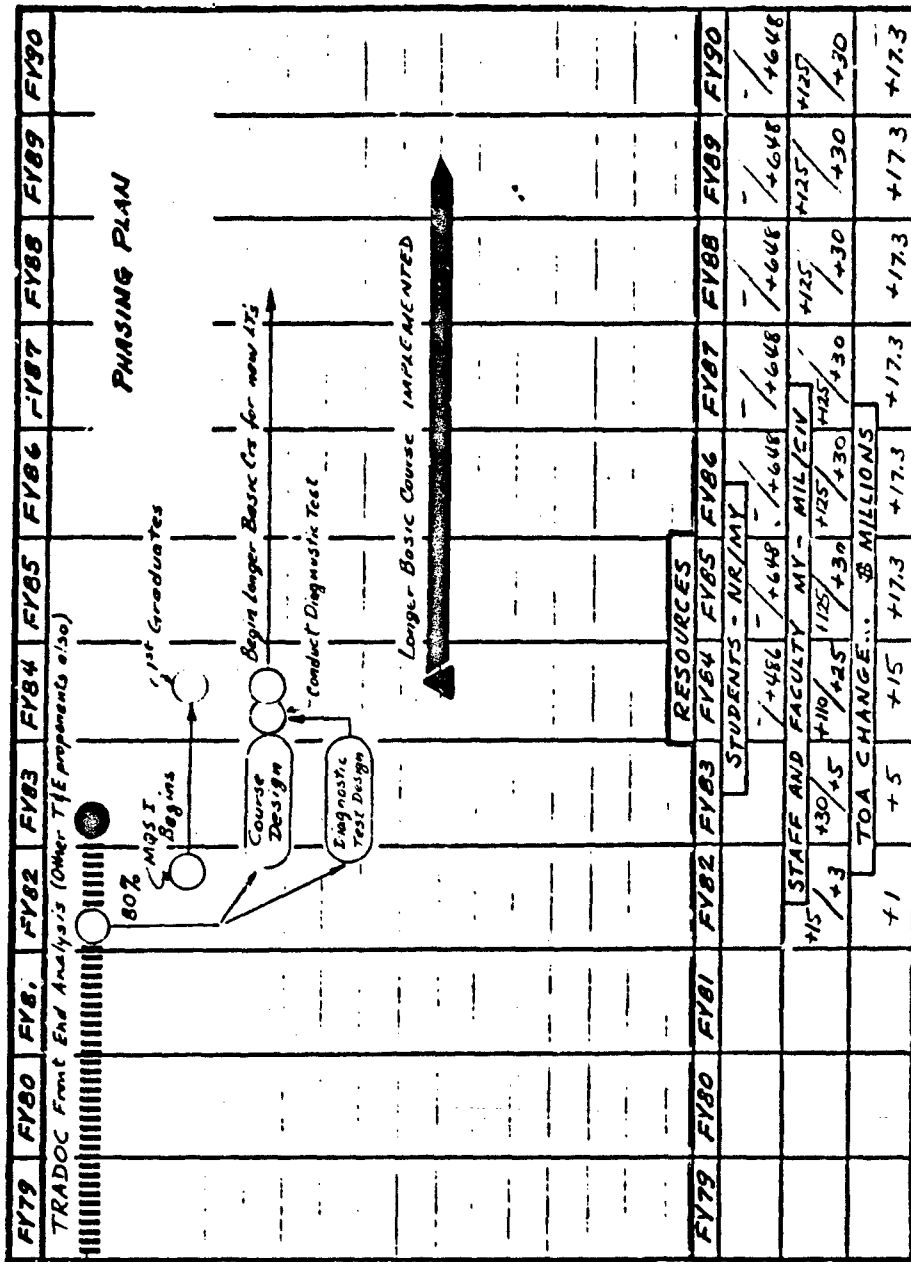 FY79 FY80 FY8. FY82 FY83 FY84 FY85 FY86 FY87 FY88 FY89 FY90
TRADOC Front End Analysis (Other T&E proponents also)
PHASING PLAN
80%
MQS I
Begins
1st Graduates
Course
Design
Begin longer Basic Crs for new LTs
Conduct Diagnostic Test
Diagnostic
Test Design
Longer Basic Course IMPLEMENTED
RESOURCES
FY79 FY80 FY81 FY82 FY83 FY84 FY85 FY86 FY87 FY88 FY89 FY90
STUDENTS - NR/MY
-/+486 -/+648 -/+648 -/+648 -/+648 -/+648 -/+648
STAFF AND FACULTY MY - MIL/CIV
+15/+3 +30/+5 +110/+25 +125/+30 +125/+30 +125/+30 +125/+30 +125/+30 +125/+30
TOA CHANGE... $ MILLIONS
+1 +5 +15 +17.3 +17.3 +17.3 +17.3 +17.3 +17.3